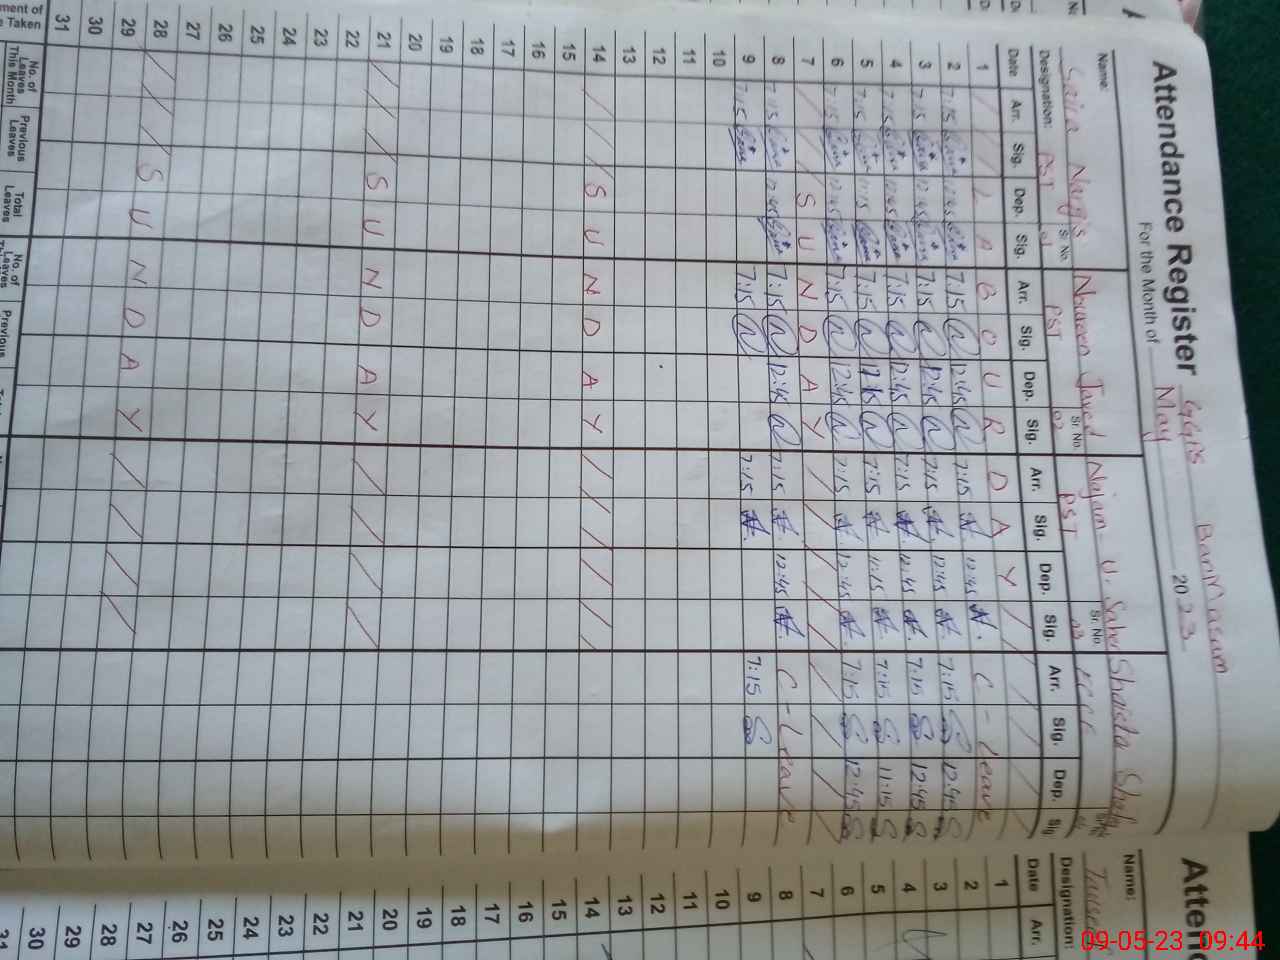 Attendance Register GGPS BaniMasum
For the Month of May 2023
Name: Saira Nargis Noureen Javed Najam-U-Saher Shaista Shah
Designation: PST Sr. No. 01 PST Sr. No. 02 PST Sr. No. 03 ECCE
Date Arr. Sig. Dep. Sig. Arr. Sig. Dep. Sig. Arr. Sig. Dep. Sig. Arr. Sig. Dep. Sig
1 LABOUR DAY
2 7:15 12:45 7:15 12:45 7:15 12:45 C-Leave
3 7:15 12:45 7:15 12:45 7:15 12:45 7:15 12:45
4 7:15 12:45 7:15 12:45 7:15 12:45 7:15 12:45
5 7:15 11:15 7:15 7:15 11:15 7:15 11:15
6 7:15 12:45 7:15 12:45 7:15 12:45 7:15 12:45
7 SUNDAY
8 7:15 12:45 7:15 12:45 7:15 12:45 C-Leave
9 7:15 7:15 7:15 7:15
10
11
12
13
14 SUNDAY
15
16
17
18
19
20
21 SUNDAY
22
23
24
25
26
27
28 SUNDAY
29
30
31
No. of Leaves This Month Previous Leaves Total Leaves No. of Leaves Previous
Atten
Name:
Designation:
Date Arr.
1
2
3
4
5
6
7
8
9
10
11
12
13
14
15
16
17
18
19
20
21
22
23
24
25
26
27
28
29
30
31
09-05-23 09:44